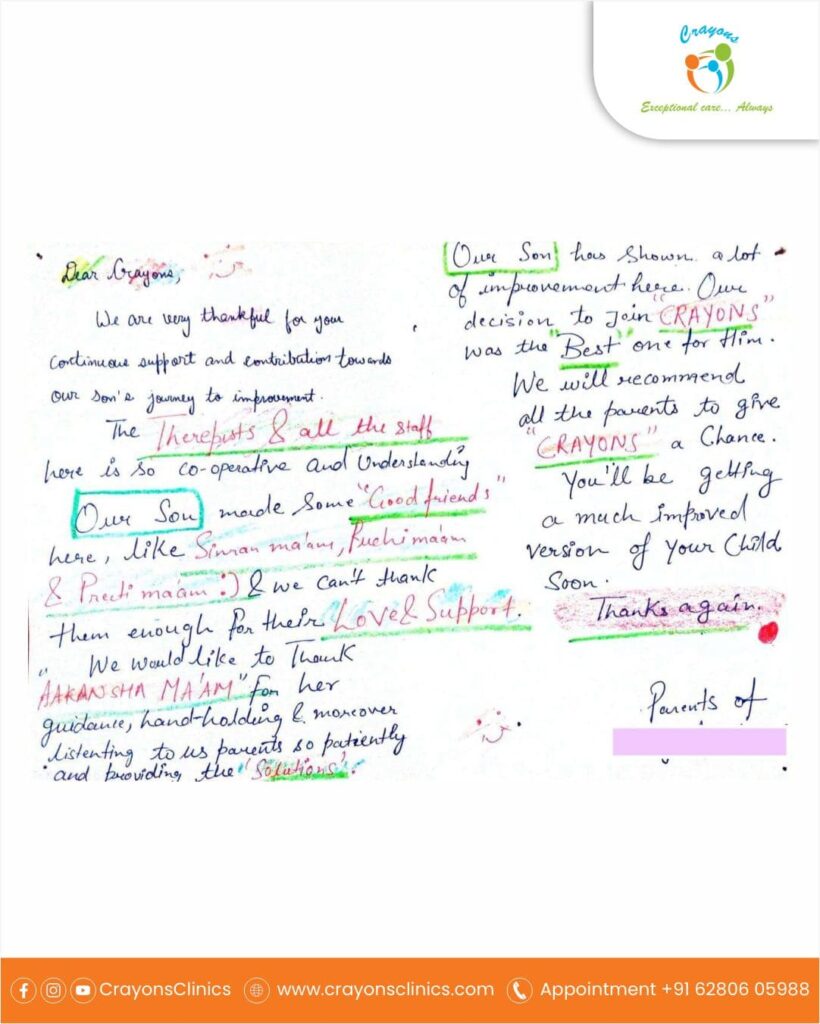 Crayons
Exceptional care... Always
Dear Crayons,
We are very thankful for your
continuous support and contribution towards
our son's journey to improvement.
The Therepists & all the staff
here is so co-operative and Understanding
Our Son made some "Good friends"
here, like Simran ma'am, Ruchi ma'am
& Preeti ma'am :) & we can't thank
them enough for their Love & Support.
We would like to Thank
"AAKANSHA MA'AM" for her
guidance, hand-holding & moreover
listenting to us parents so patiently
and providing the 'Solutions'.
Our Son has shown a lot
of improvement here. Our
decision to Join "CRAYONS"
was the "Best" one for Him.
We will recommend
all the parents to give
"CRAYONS" a Chance.
You'll be getting
a much improved
version of Your Child
Soon.
Thanks again.
Parents of
CrayonsClinics www.crayonsclinics.com Appointment +91 62806 05988